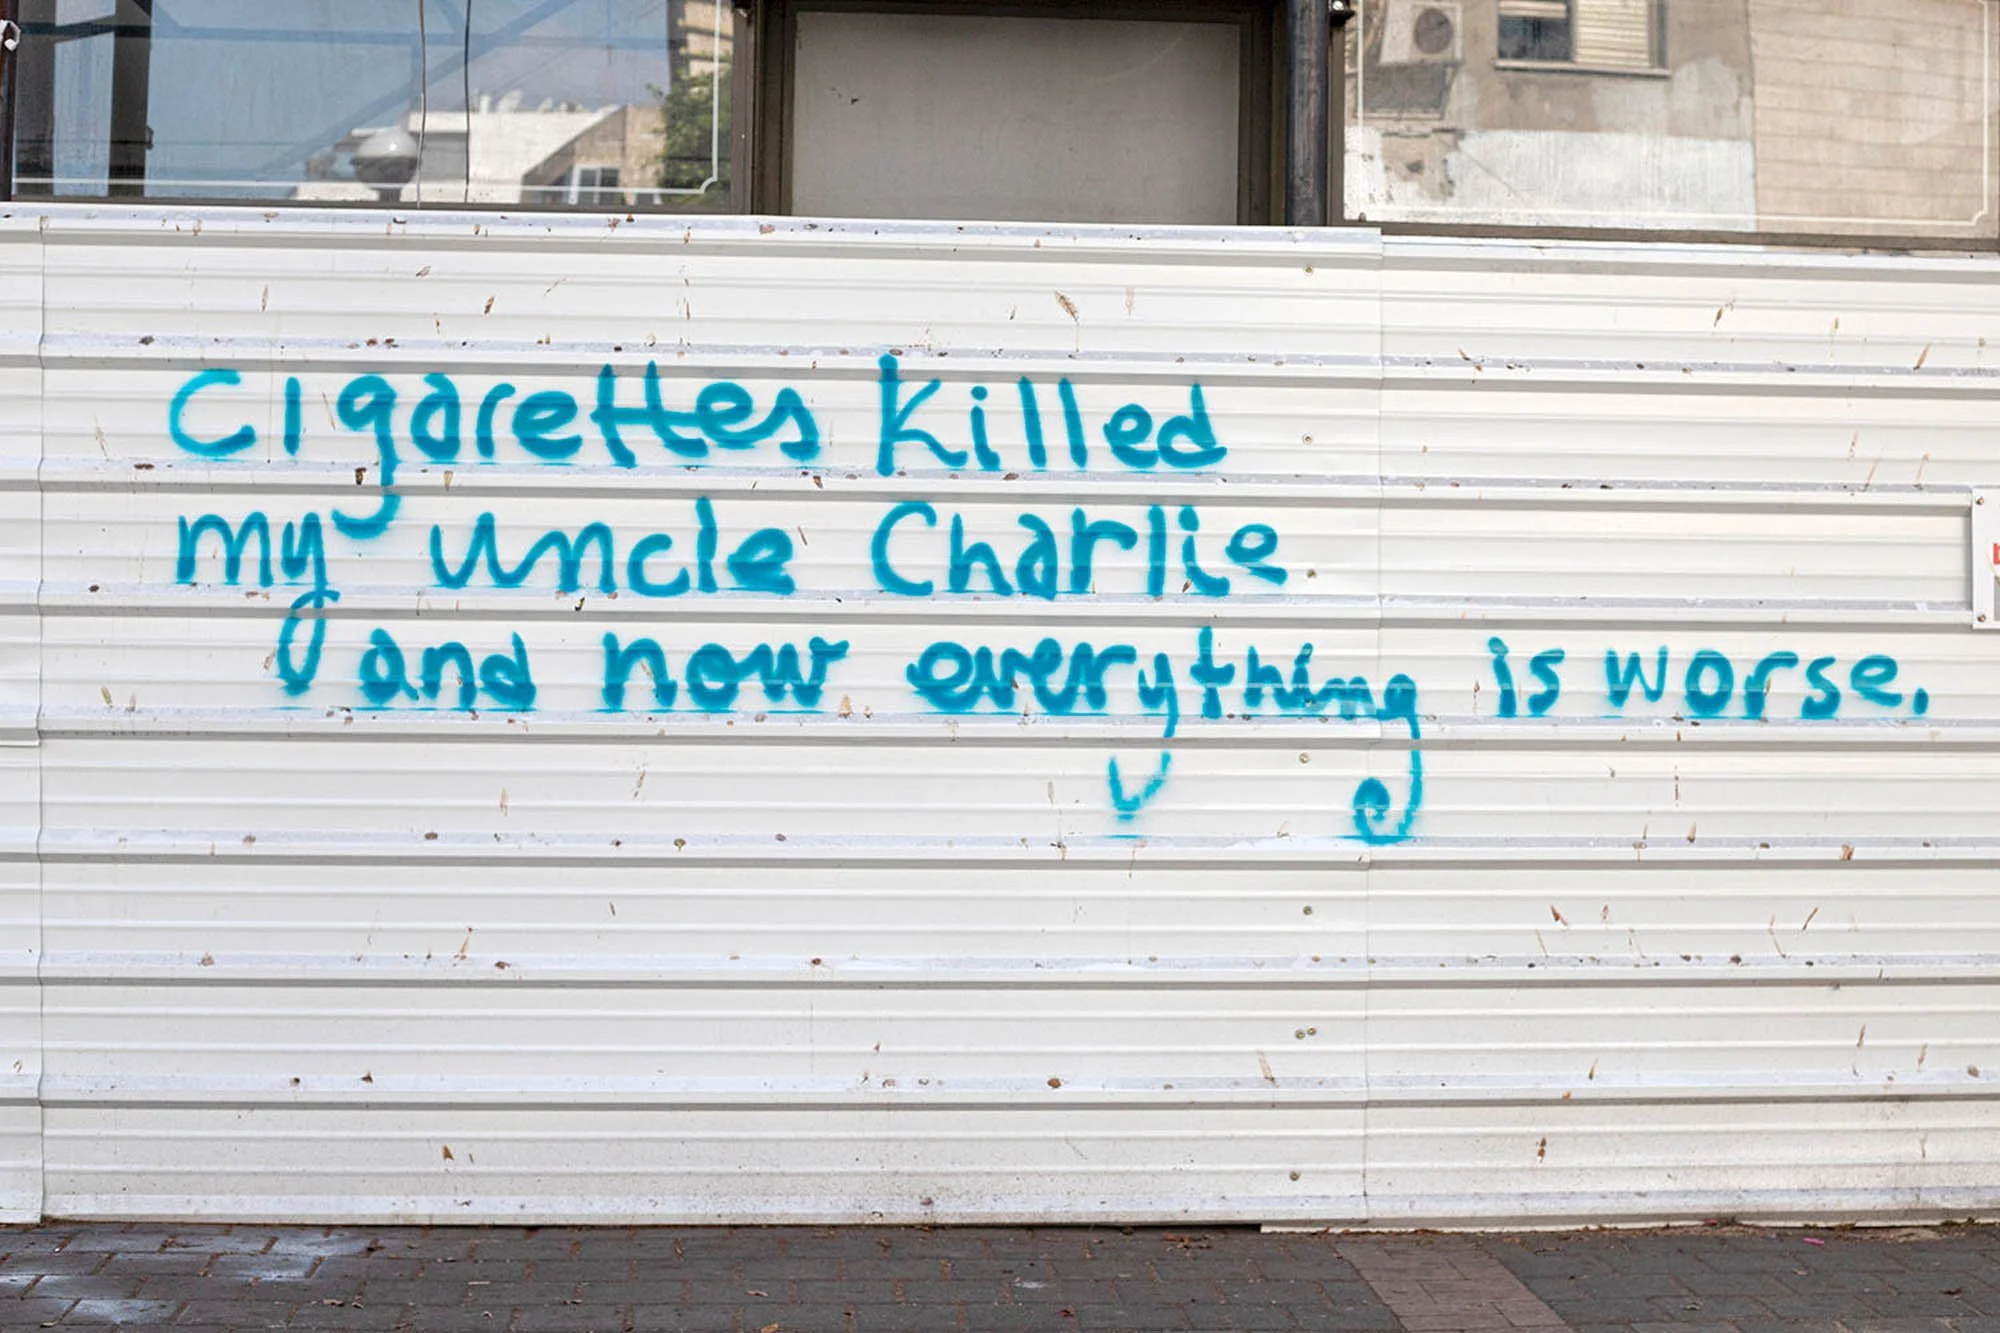 Cigarettes killed
my uncle Charlie
and now everything is worse.